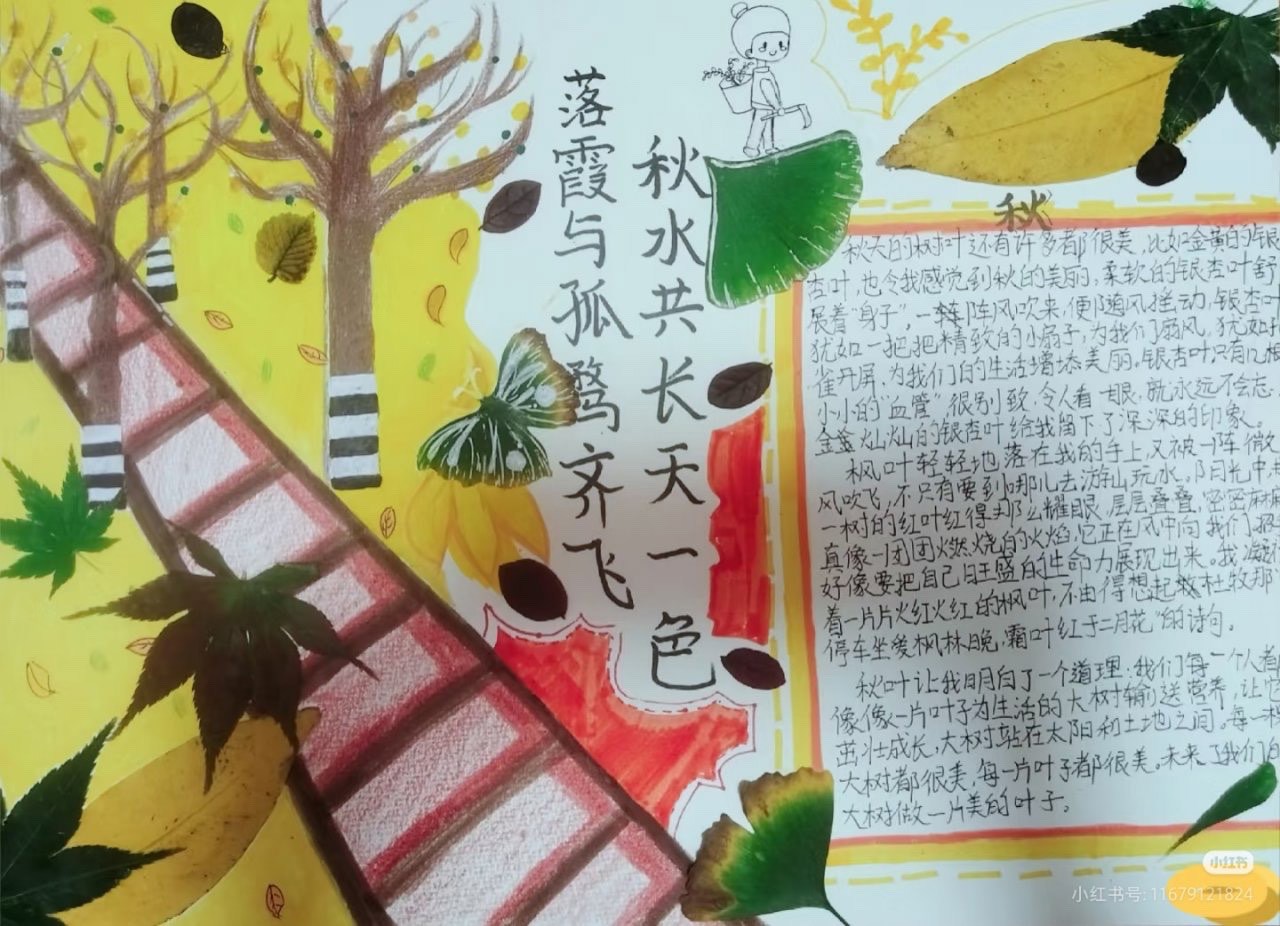 落霞与孤鹜齐飞
秋水共长天一色
秋
秋天的树叶还有许多都很美，比如金黄的银
杏叶，也令我感觉到秋的美丽，柔软的银杏叶舒
展着“身子”，一阵阵风吹来，便随风摇动，银杏叶
犹如一把把精致的小扇子，为我们扇风，犹如
雀开屏，为我们的生活增添美丽。银杏叶只有几根
小小的“血管”很别致，令人看一眼，就永远不会忘，
金金灿灿的银杏叶给我留下了深深的印象。
枫叶轻轻地落在我的手上，又被一阵微
风吹飞，不只有要到哪儿去游山玩水。阳光中
一树的红叶红得那么耀眼，层层叠叠，密密麻麻
真像一团团燃烧的火焰，它正在风中向我们招
好像要把自己旺盛的生命力展现出来。我凝
着一片片火红火红的枫叶，不由得想起杜牧那
停车坐爱枫林晚，霜叶红于二月花”的诗句。
秋叶让我明白了一个道理：我们每一个人都
像像一片叶子为生活的大树输送营养，让它
茁壮成长，大树站在太阳和土地之间，每一
大树都很美，每一片叶子都很美。未来了我们
大树做一片美的叶子。
小红书
小红书号：11679121824